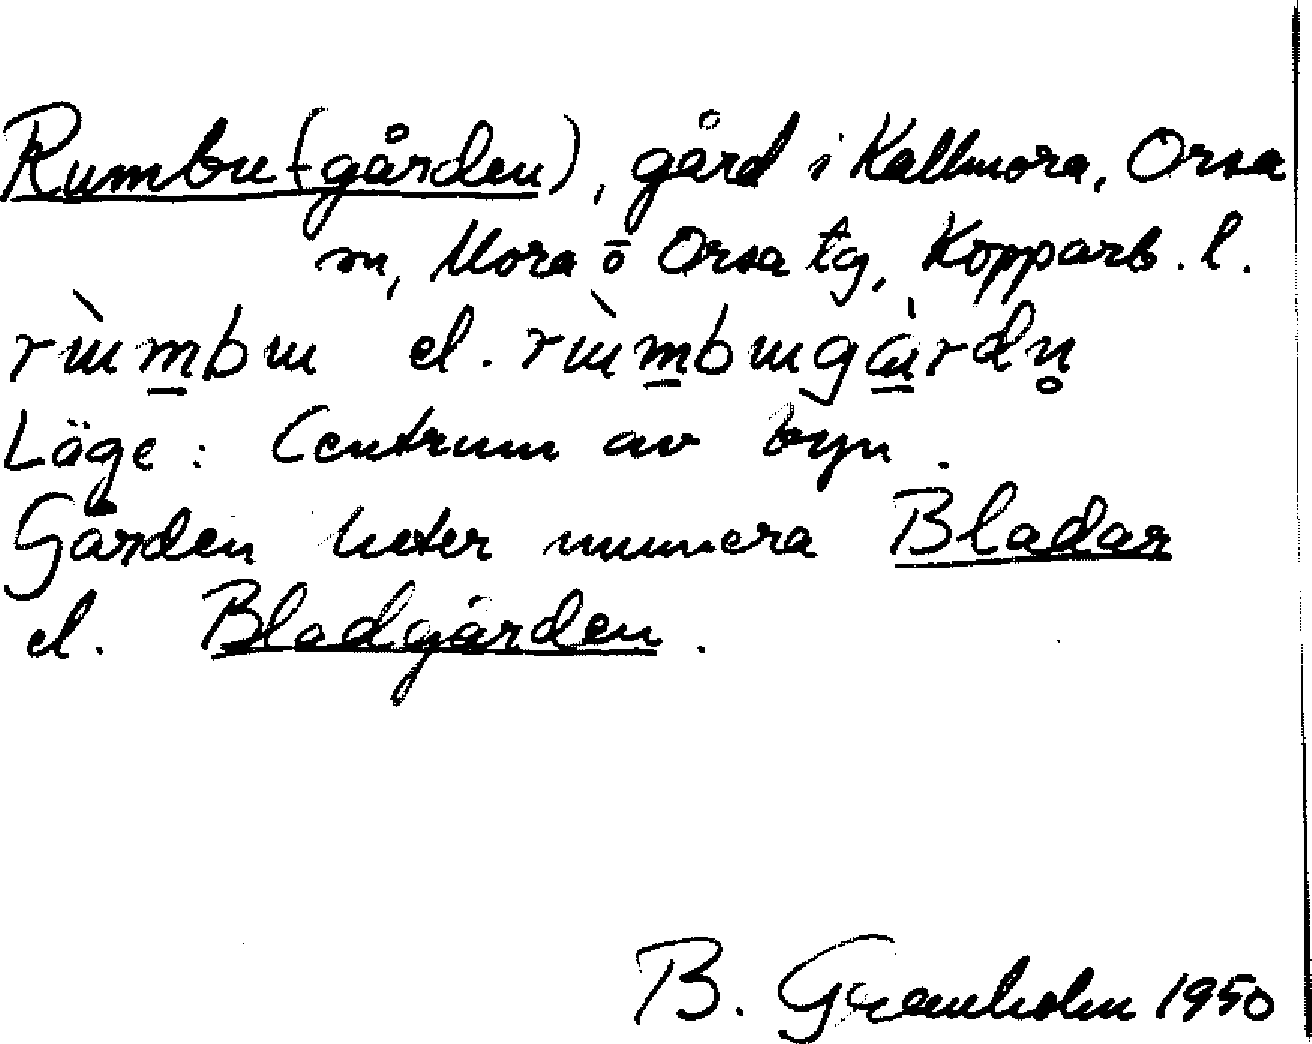 Rumbu(-gården), gård i Kallmora, Orsa
sn, Mora o Orsa tg, Kopparb. l.
rùmbu el. rùmbugàrdn̥
Läge: Centrum av byn.
Gården heter numera Bladar
el. Bladgården.
B. Greenholm 1950